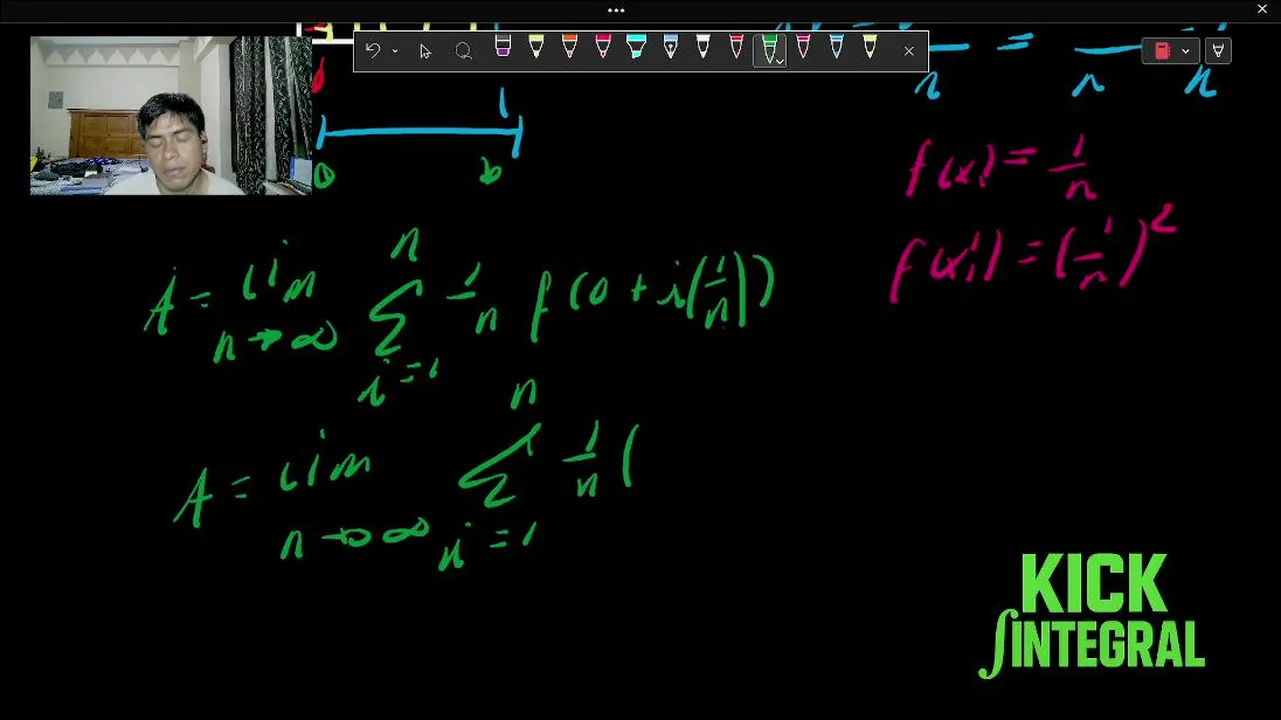 0 b
1
n n n
f(x) = 1/n
f(x₁) = (1/n)²
A = lim n→∞ n Σ i=1 1/n f(0 + i(1/n))
A = lim n→∞ n Σ i=1 1/n (
KICK
∫INTEGRAL